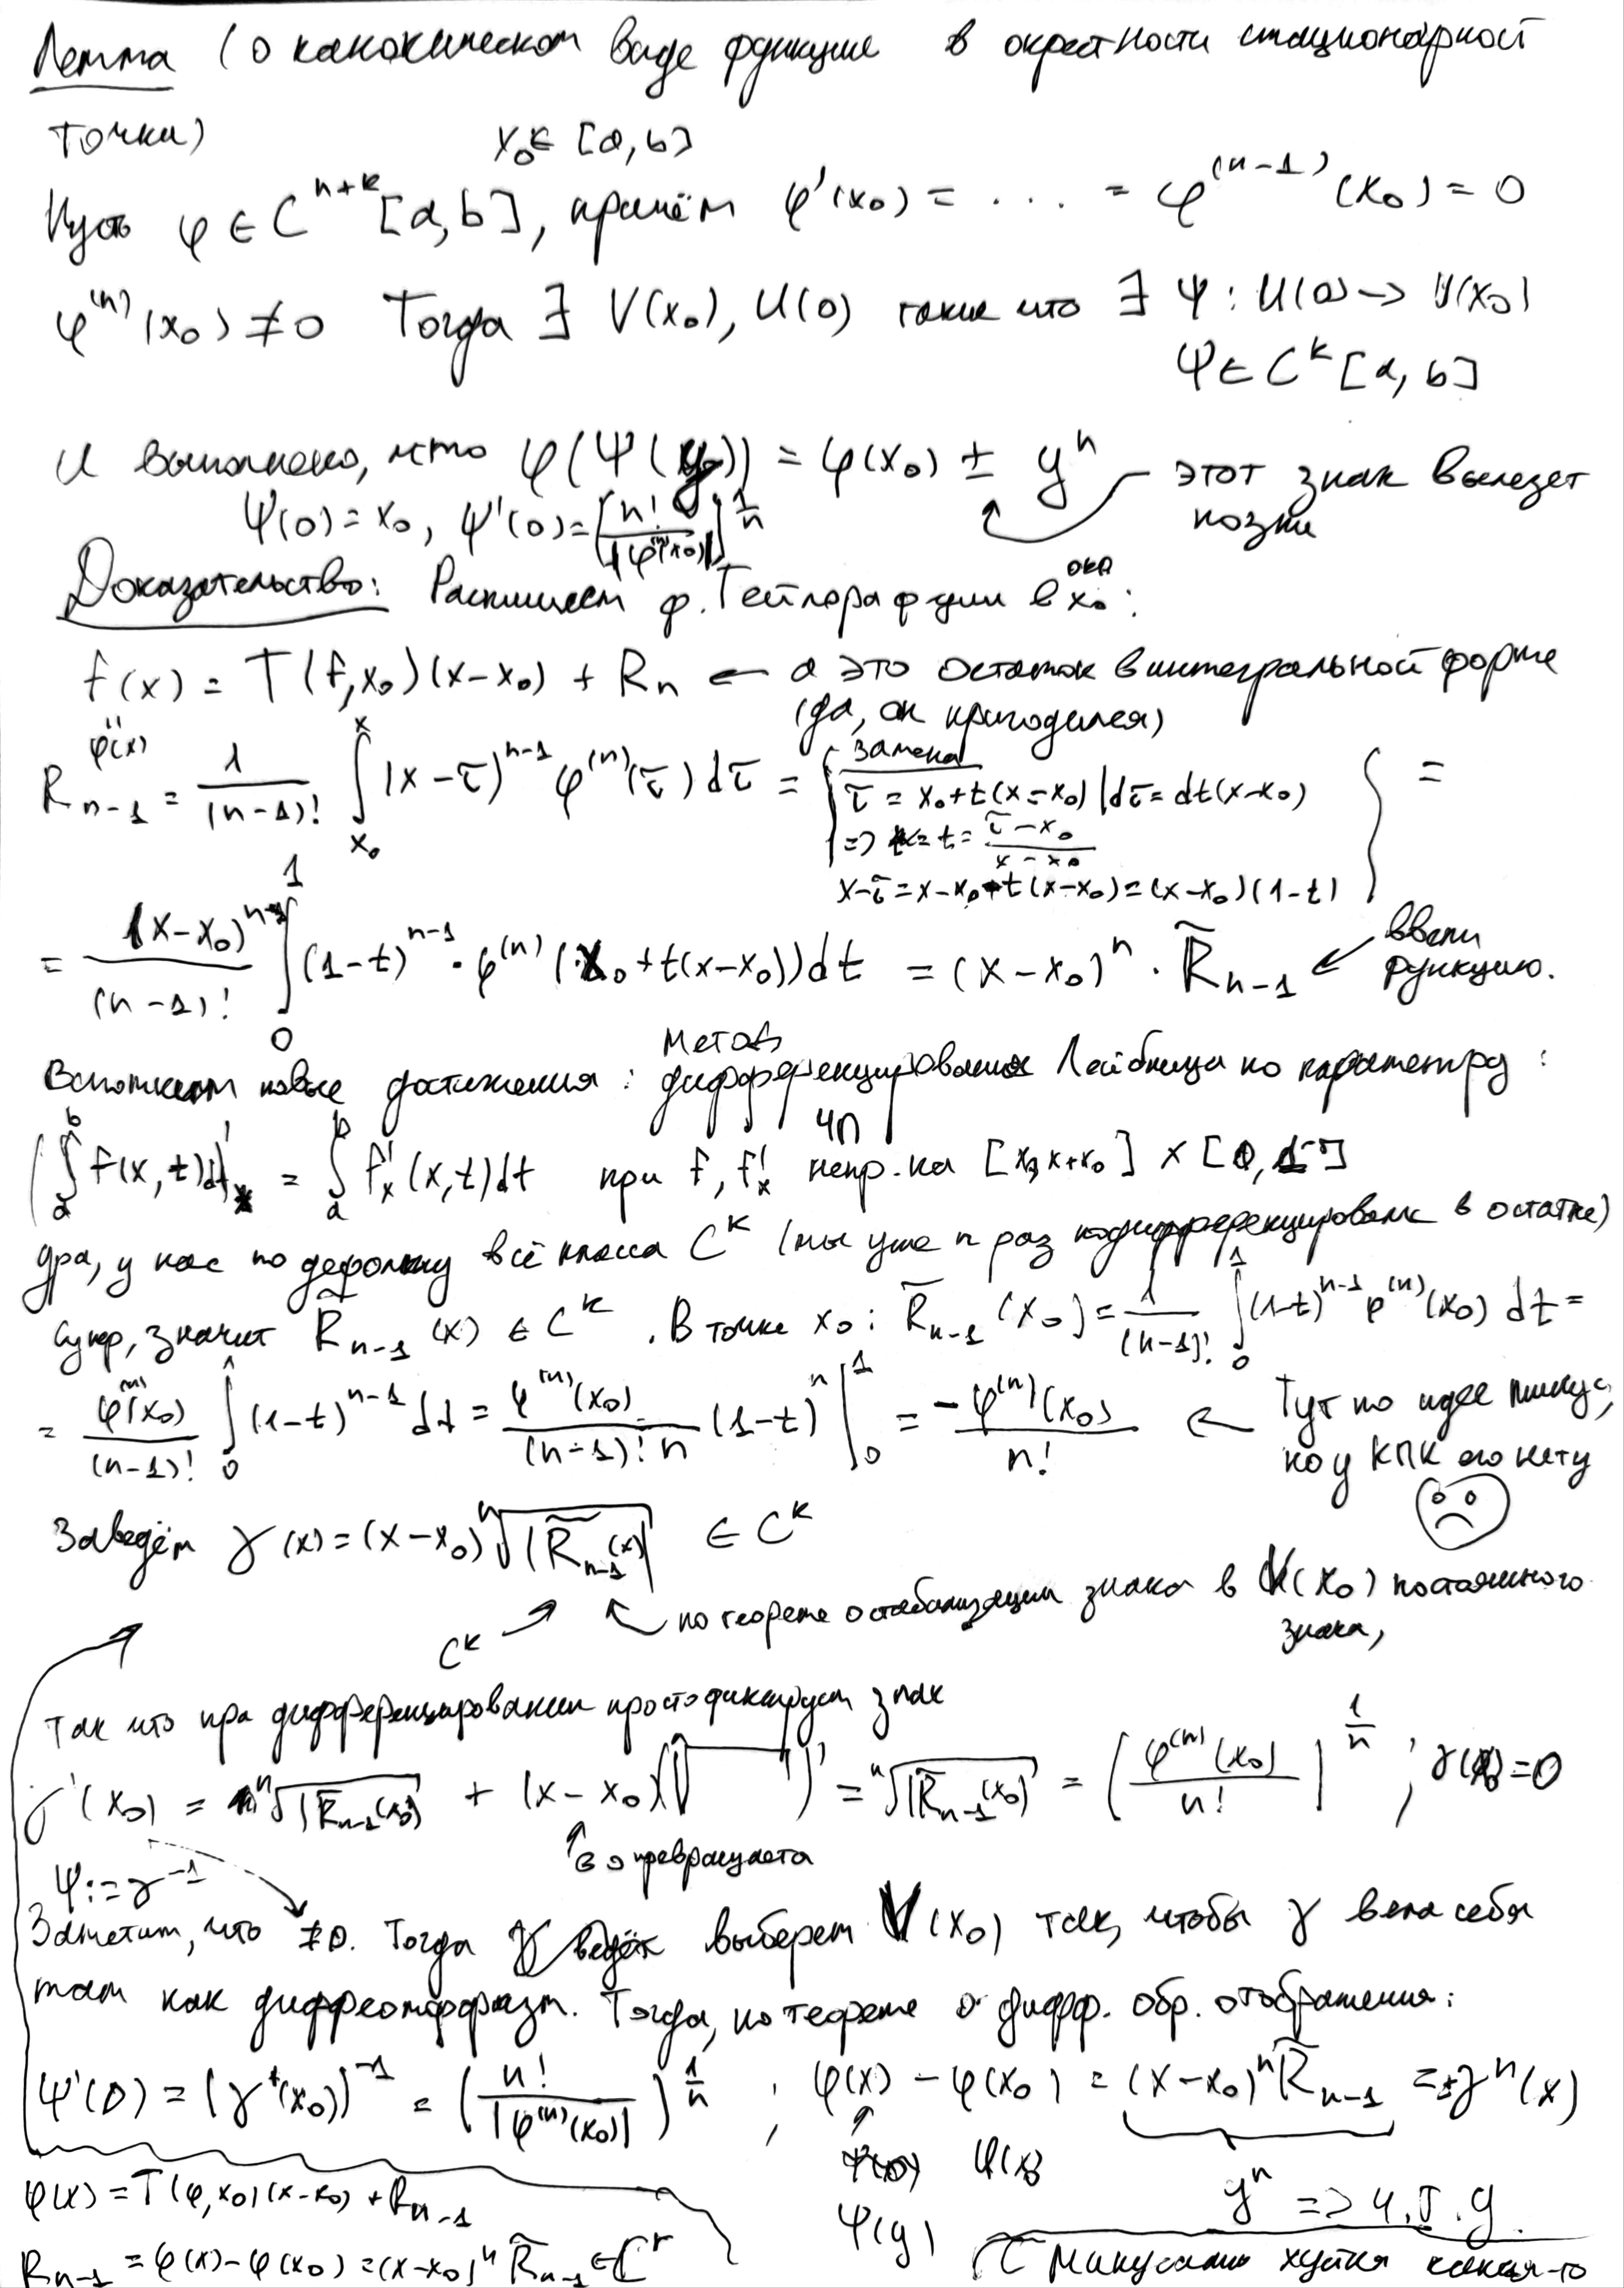 Лемма (о каноническом виде функции в окрестности стационарной
точки) x₀ ∈ [a, b]
Пусть φ ∈ C^{n+k}[a, b], причём φ'(x₀) = ... = φ^{(n-1)}(x₀) = 0
φ^{(n)}(x₀) ≠ 0 Тогда ∃ V(x₀), U(0) такие что ∃ Ψ : U(0) → V(x₀)
Ψ ∈ C^k [a, b]
и выполнено, что φ(Ψ(y)) = φ(x₀) ± y^n ← этот знак вылезет
позже
Ψ(0) = x₀, Ψ'(0) = [n! / |φ^{(n)}(x₀)|]^{1/n}
Доказательство: Распишем ф. Тейлора ф-ции в окр x₀:
f(x) = T(f, x₀)(x-x₀) + R_n ← а это остаток в интегральной форме
(да, он пригодился)
φ(x)
R_{n-1} = 1/(n-1)! ∫_{x₀}^{x} (x-τ)^{n-1} φ^{(n)}(τ) dτ = { замена
τ = x₀ + t(x-x₀) | dτ = dt(x-x₀)
=> t = (τ-x₀)/(x-x₀)
x-τ = x-x₀-t(x-x₀) = (x-x₀)(1-t) } =
= (x-x₀)^n/(n-1)! ∫_0^1 (1-t)^{n-1} · φ^{(n)}(x₀ + t(x-x₀))dt = (x-x₀)^n · R̃_{n-1} ← ввели
функцию.
Вспомним новые достижения: метод дифференцирования Лейбница по параметру:
(∫_a^b f(x,t)dt)'_x = ∫_a^b f'_x(x,t)dt при f, f'_x непр. на [x₀, x+x₀] × [0, 1]
ура, у нас по дефолту всё класса C^k (мы уже n раз продифференцировали в остатке)
Супер, значит R̃_{n-1}(x) ∈ C^k. В точке x₀: R̃_{n-1}(x₀) = 1/(n-1)! ∫_0^1 (1-t)^{n-1} φ^{(n)}(x₀) dt =
= φ^{(n)}(x₀)/(n-1)! ∫_0^1 (1-t)^{n-1} dt = φ^{(n)}(x₀)/((n-1)! n) (1-t)^n |_0^1 = -φ^{(n)}(x₀)/n! ← Тут по идее минус,
но у КПК его нету
Заведём γ(x) = (x-x₀) ⁿ√|R̃_{n-1}(x)| ∈ C^k
C^k ↗ ↖ по теореме о стабилизации знака в V(x₀) постоянного
знака,
так что при дифференцировании просто фиксируем знак
γ'(x₀) = ⁿ√|R̃_{n-1}(x₀)| + (x-x₀)(√ )' = ⁿ√|R̃_{n-1}(x₀)| = (φ^{(n)}(x₀)/n!)^{1/n}; γ(x₀) = 0
↑ в 0 превращается
Ψ := γ^{-1}
Заметим, что ≠ 0. Тогда выберем V(x₀) так, чтобы γ вела себя
там как диффеоморфизм. Тогда, по теореме о дифф. обр. отображения:
Ψ'(0) = (γ'(x₀))^{-1} = (n!/|φ^{(n)}(x₀)|)^{1/n}; φ(x) - φ(x₀) = (x-x₀)^n R̃_{n-1} = ±γ^n(x)
Ψ(y) y^n => ч.т.д.
φ(x) = T(φ, x₀)(x-x₀) + R_{n-1}
R_{n-1} = φ(x) - φ(x₀) = (x-x₀)^n R̃_{n-1} ∈ C^k
С минусами хуйня какая-то